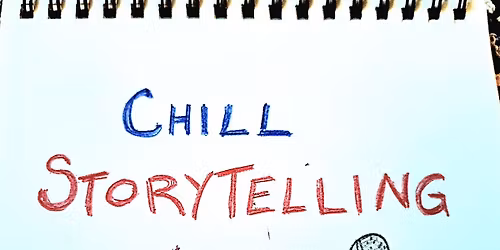 CHILL
STORYTELLING